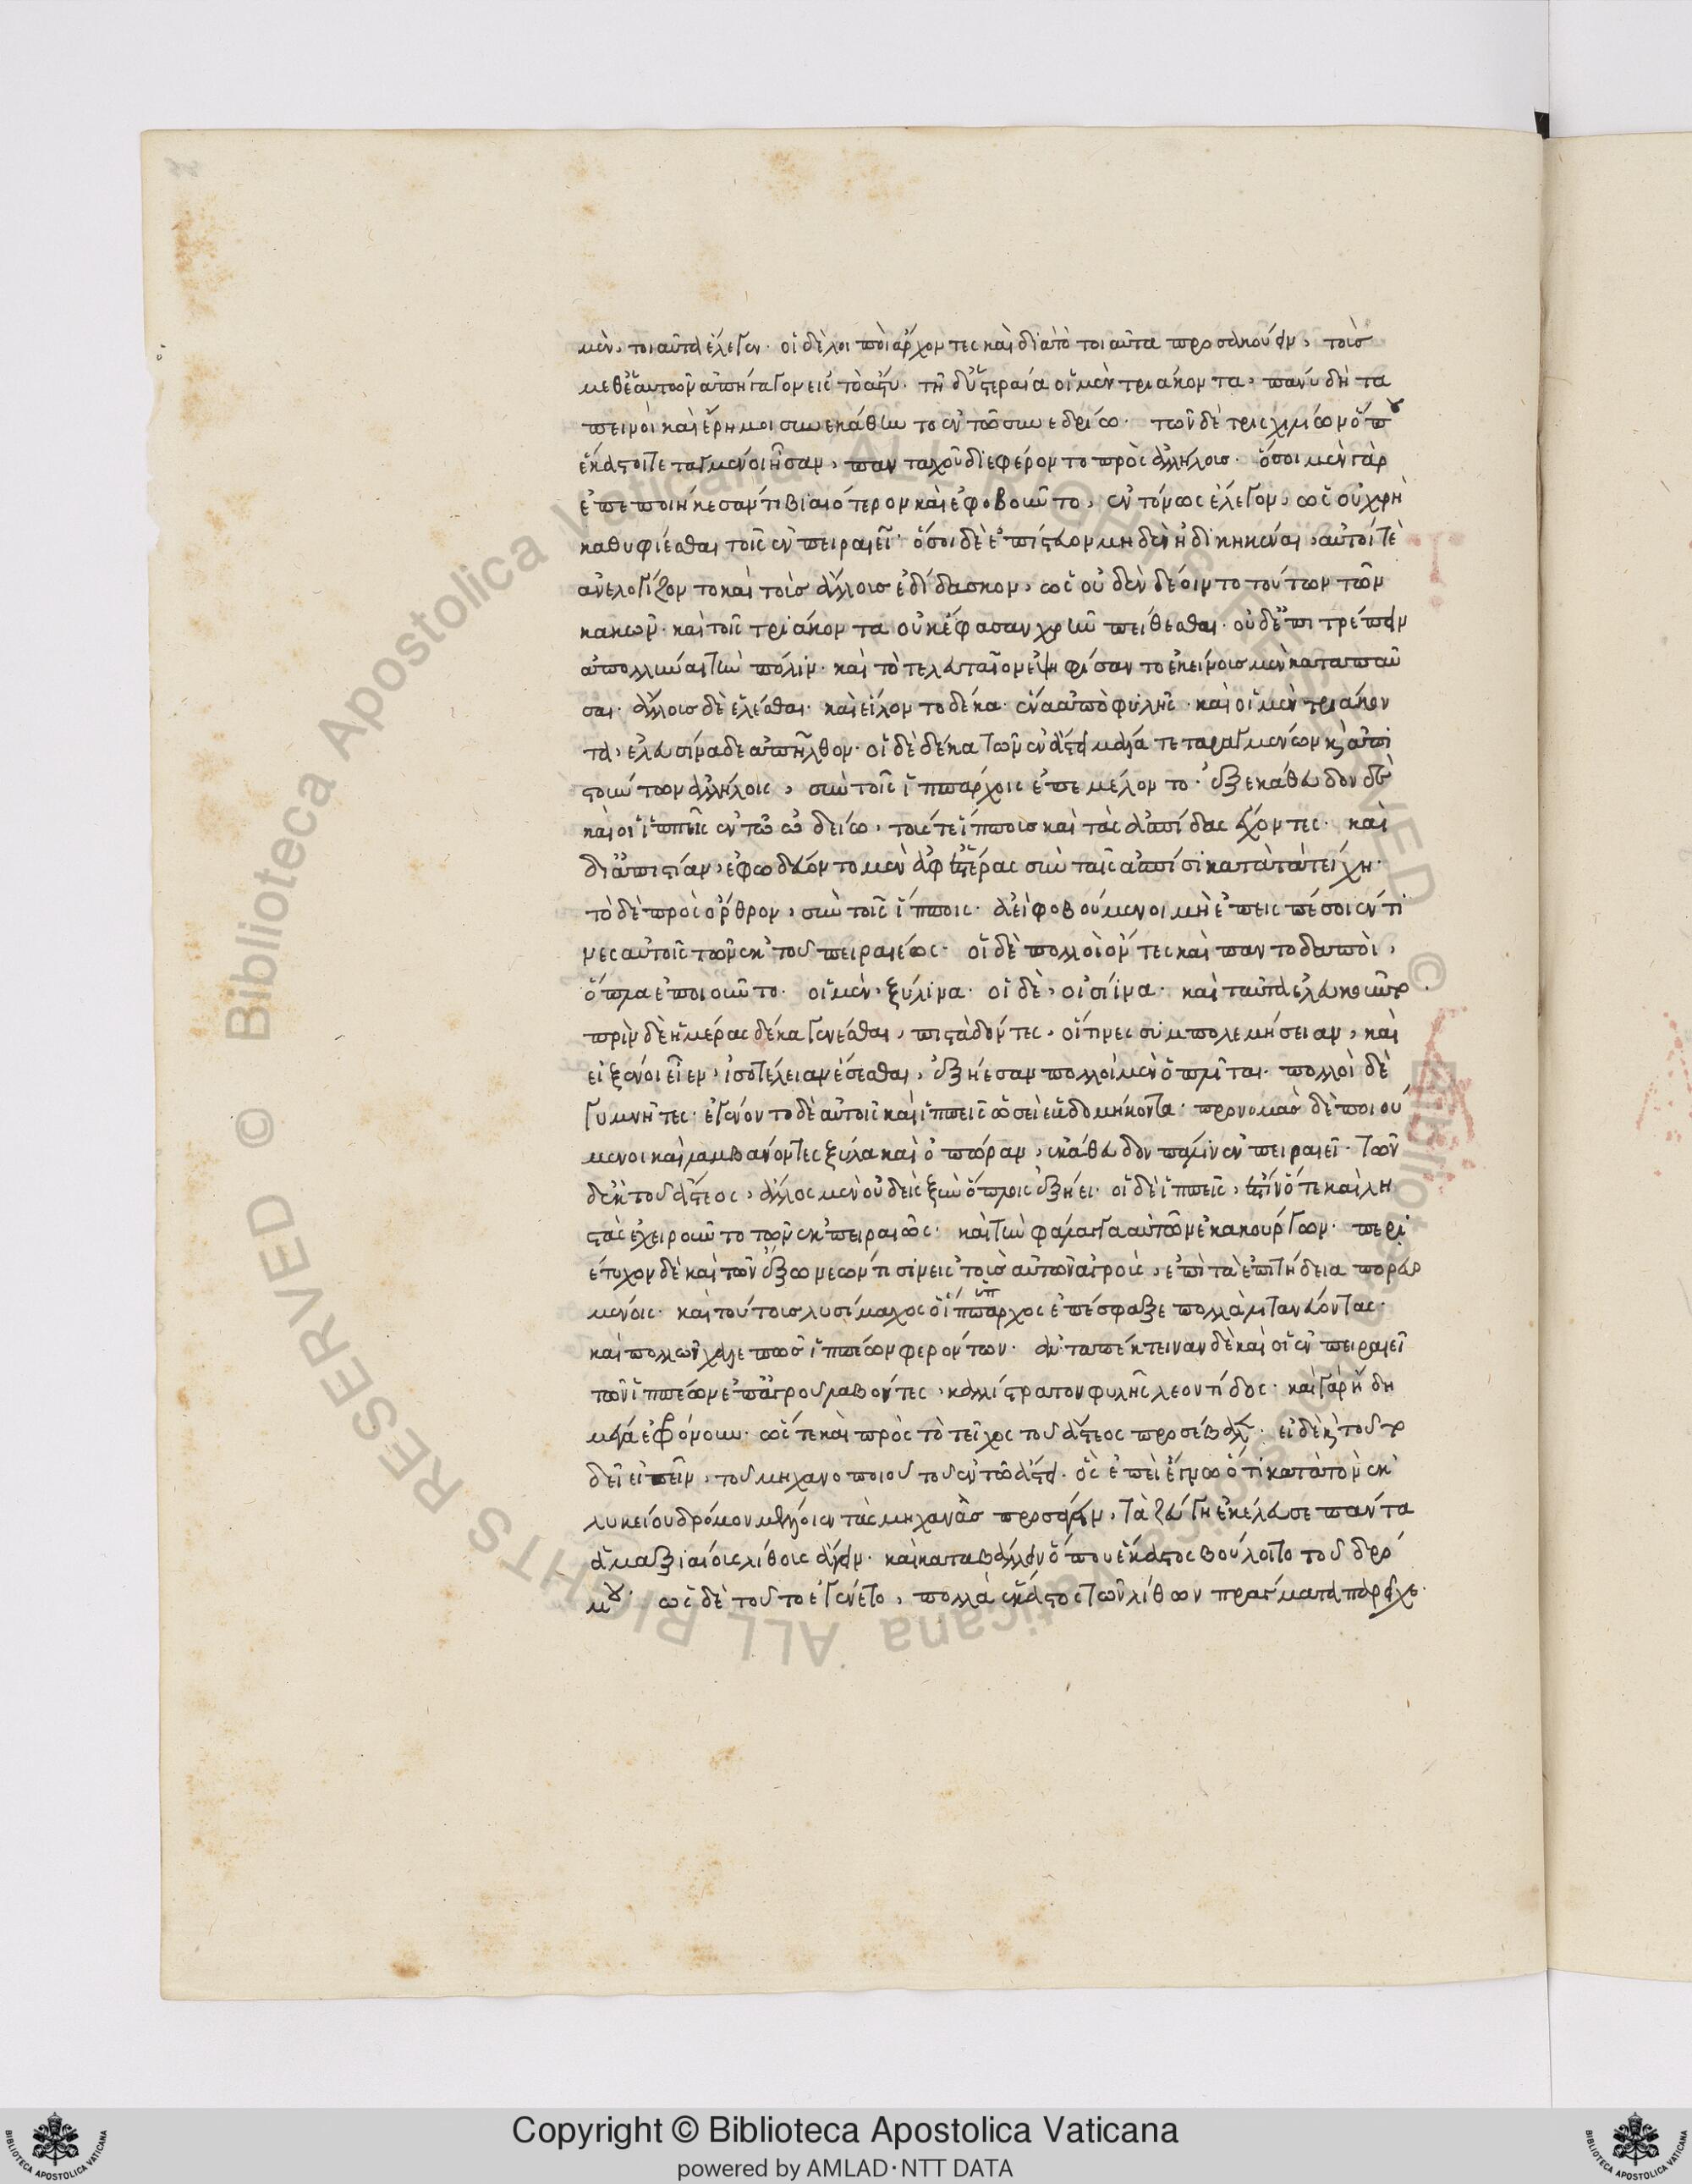 μὲν, τοιαῦτα ἔλεγεν. οἱ δὲ λοιποὶ ἄρχοντες καὶ διὰ τὸ τοιαῦτα προσακούειν, τοὺς
μεθ' ἑαυτῶν ἀπήγαγον εἰς τὸ ἄστυ. τῇ δ' ὑστεραία οἱ μὲν τριάκοντα, πανὺ δὴ τα
πεινοὶ καὶ ἔρημοι συνεκάθηντο ἐν τῷ συνεδρίω. τῶν δὲ τρισχιλίων ὅπου
ἕκαστοι τεταγμένοι ἦσαν, πανταχοῦ διεφέροντο πρὸς ἀλλήλους. ὅσοι μὲν γὰρ
ἐπεποιήκεσάν τι βιαιότερον καὶ ἐφοβοῦντο, ἐντόνως ἔλεγον, ὡς οὐ χρὴ
καθυφίεσθαι τοῖς ἐν πειραιεῖ. ὅσοι δὲ ἐπίστευον μηδὲν ἠδικηκέναι, αὐτοί τε
ἀνελογίζοντο καὶ τοὺς ἄλλους ἐδίδασκον, ὡς οὐδὲν δέοιντο τούτων τῶν
κακῶν. καὶ τοῖς τριάκοντα οὐκ ἔφασαν χρῆν πείθεσθαι. οὐδ' ἐπιτρέπειν
ἀπολλύναι τὴν πόλιν. καὶ τὸ τελευταῖον ἐψηφίσαντο ἐκείνους μὲν καταπαῦ
σαι. ἄλλους δὲ ἑλέσθαι. καὶ εἵλοντο δέκα. ἕνα ἀπὸ φυλῆς. καὶ οἱ μὲν τριάκον
τα, ἐλευσίναδε ἀπῆλθον. οἱ δὲ δέκα τῶν ἐν ἄστει μάλα τεταραγμένων κ ἀπι
στούντων ἀλλήλοις, σὺν τοῖς ἱππάρχοις ἐπεμέλοντο. ἐξεκάθευδον δὲ
καὶ οἱ ἱππεῖς ἐν τῷ ὠδείω, τούς τε ἵππους καὶ τὰς ἀσπίδας ἔχοντες. καὶ
δι' ἀπιστίαν, ἐφώδευον τὸ μὲν ἀφ' ἑσπέρας σὺν ταῖς ἀσπίσι κατὰ τὰ τείχη.
τὸ δὲ πρὸς ὄρθρον, σὺν τοῖς ἵπποις. ἀεὶ φοβούμενοι μὴ ἐπεισπέσοιέν τι
νες αὐτοῖς τῶν ἐκ τοῦ πειραιέως. οἱ δὲ πολλοὶ ὄντες καὶ παντοδαποὶ,
ὅπλα ἐποιοῦντο. οἱ μὲν, ξύλινα. οἱ δὲ, οἰσύινα. καὶ ταῦτα ἐλευκοῦντο.
πρὶν δὲ ἡμέρας δέκα γενέσθαι, πιστὰ δόντες, οἵτινες συμπολεμήσειαν, καὶ
εἰ ξένοι εἶεν, ἰσοτέλειαν ἔσεσθαι, ἐξήεσαν πολλοὶ μὲν ὁπλῖται. πολλοὶ δὲ
γυμνῆτες. ἐγένοντο δὲ αὐτοῖς καὶ ἱππεῖς ὡσεὶ ἑβδομήκοντα. προνομὰς δὲ ποιού
μενοι καὶ λαμβάνοντες ξύλα καὶ ὀπώραν, ἐκάθευδον πάλιν ἐν πειραιεῖ. τῶν
δ' ἐκ τοῦ ἄστεος, ἄλλος μὲν οὐδεὶς ξὺν ὅπλοις ἐξήει. οἱ δὲ ἱππεῖς, ἔστιν ὅτε καὶ λη
στὰς ἐχειροῦντο τῶν ἐκ πειραιῶς. καὶ τὴν φάλαγγα αὐτῶν ἐκακούργουν. περι
έτυχον δὲ καὶ τῶν ἐξωνέων τισὶν εἰς τοὺς αὐτῶν ἀγροὺς, ἐπὶ τὰ ἐπιτήδεια πορευο
μένοις. καὶ τούτους λυσίμαχος ὁ ἵππαρχος ἐπέσφαξε πολλὰ λιτανεύοντας.
καὶ πολλῶν χαλεπῶς ἱππέων φερόντων. ἀνταπέκτειναν δὲ καὶ οἱ ἐν πειραιεῖ
τῶν ἱππέων ἐπ' ἀγροῦ λαβόντες, καλλίστρατον φυλῆς λεοντίδος. καὶ γὰρ ἤδη
μέγα ἐφρόνουν. ὥστε καὶ πρὸς τὸ τεῖχος τοῦ ἄστεος προσέβαλλον. εἰ δὲ κ τοῦτο
δεῖ εἰπεῖν, τοῦ μηχανοποιοῦ τοῦ ἐν τῷ ἄστει. ὃς ἐπεὶ ἔγνω ὅτι κατὰ τὸν ἐκ
λυκείου δρόμον μέλλοιεν τὰς μηχανὰς προσάγειν, τὰ ζεύγη ἐκέλευσε πάντα
ἁμαξιαίους λίθους ἄγειν. καὶ καταβάλλειν ὅπου ἕκαστος βούλοιτο τοῦ δρό
μου. ὡς δὲ τοῦτο ἐγένετο, πολλὰ ἕκαστος τῶν λίθων πράγματα παρεῖχε.
Copyright © Biblioteca Apostolica Vaticana
powered by AMLAD・NTT DATA